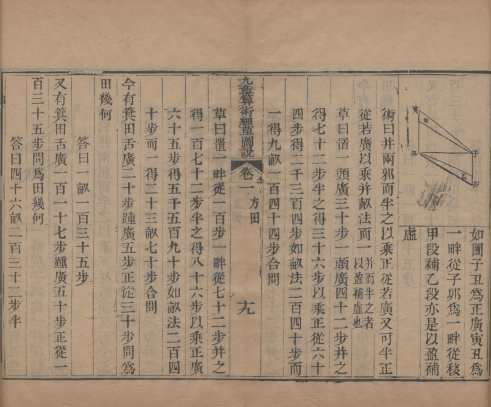 如圖子丑爲正廣寅丑爲
一畔從子夘爲一畔從移
甲段補乙段亦是以盈補
虛
術曰并兩邪而半之以乘正從若廣又可半正
從若廣以乘并畝法而一
并而半之者
以盈補虛也
草曰置一頭廣三十步一頭廣四十二步并之
得七十二步半之得三十六步以乘正從六十
四步得二千三百四步如畝法二百四十步而
一得九畝一百四十四步合問
九章算術細草圖說
卷一
方田
十九
草曰置一畔從一百步一畔從七十二步并之
得一百七十二步半之得八十六步以乘正廣
六十五步得五千五百九十步如畝法二百四
十步而一得二十三畝七十步合問
今有箕田舌廣二十步踵廣五步正從三十步問爲
田幾何
答曰一畝一百三十五步
又有箕田舌廣一百一十七步踵廣五十步正從一
百三十五步問爲田幾何
答曰四十六畝二百三十二步半